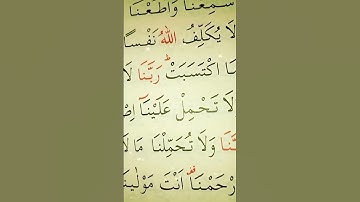 سَمِعْنَا وَاَطَعْنَا
لَا يُكَلِّفُ اللّٰهُ نَفْسًا
مَا اكْتَسَبَتْ رَبَّنَا لَا
لَا تَحْمِلْ عَلَيْنَٓا اِصْ
وَلَا تُحَمِّلْنَا مَا لَا
ارْحَمْنَا اَنْتَ مَوْلٰينَا